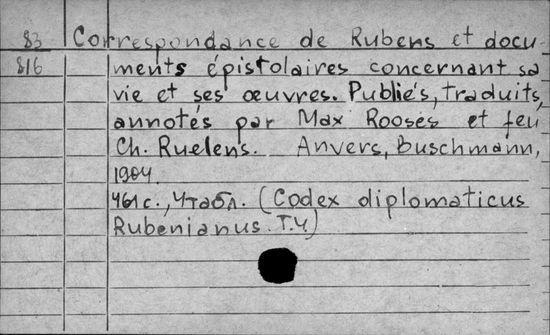 83 Correspondance de Rubens et docu-
816 ments épistolaires concernant sa
vie et ses œuvres. Publiés, traduits,
annotés par Max Rooses et feu
Ch. Ruelens. Anvers, Buschmann,
1904.
461 с., 4 табл. (Codex diplomaticus
Rubenianus. T. 4)